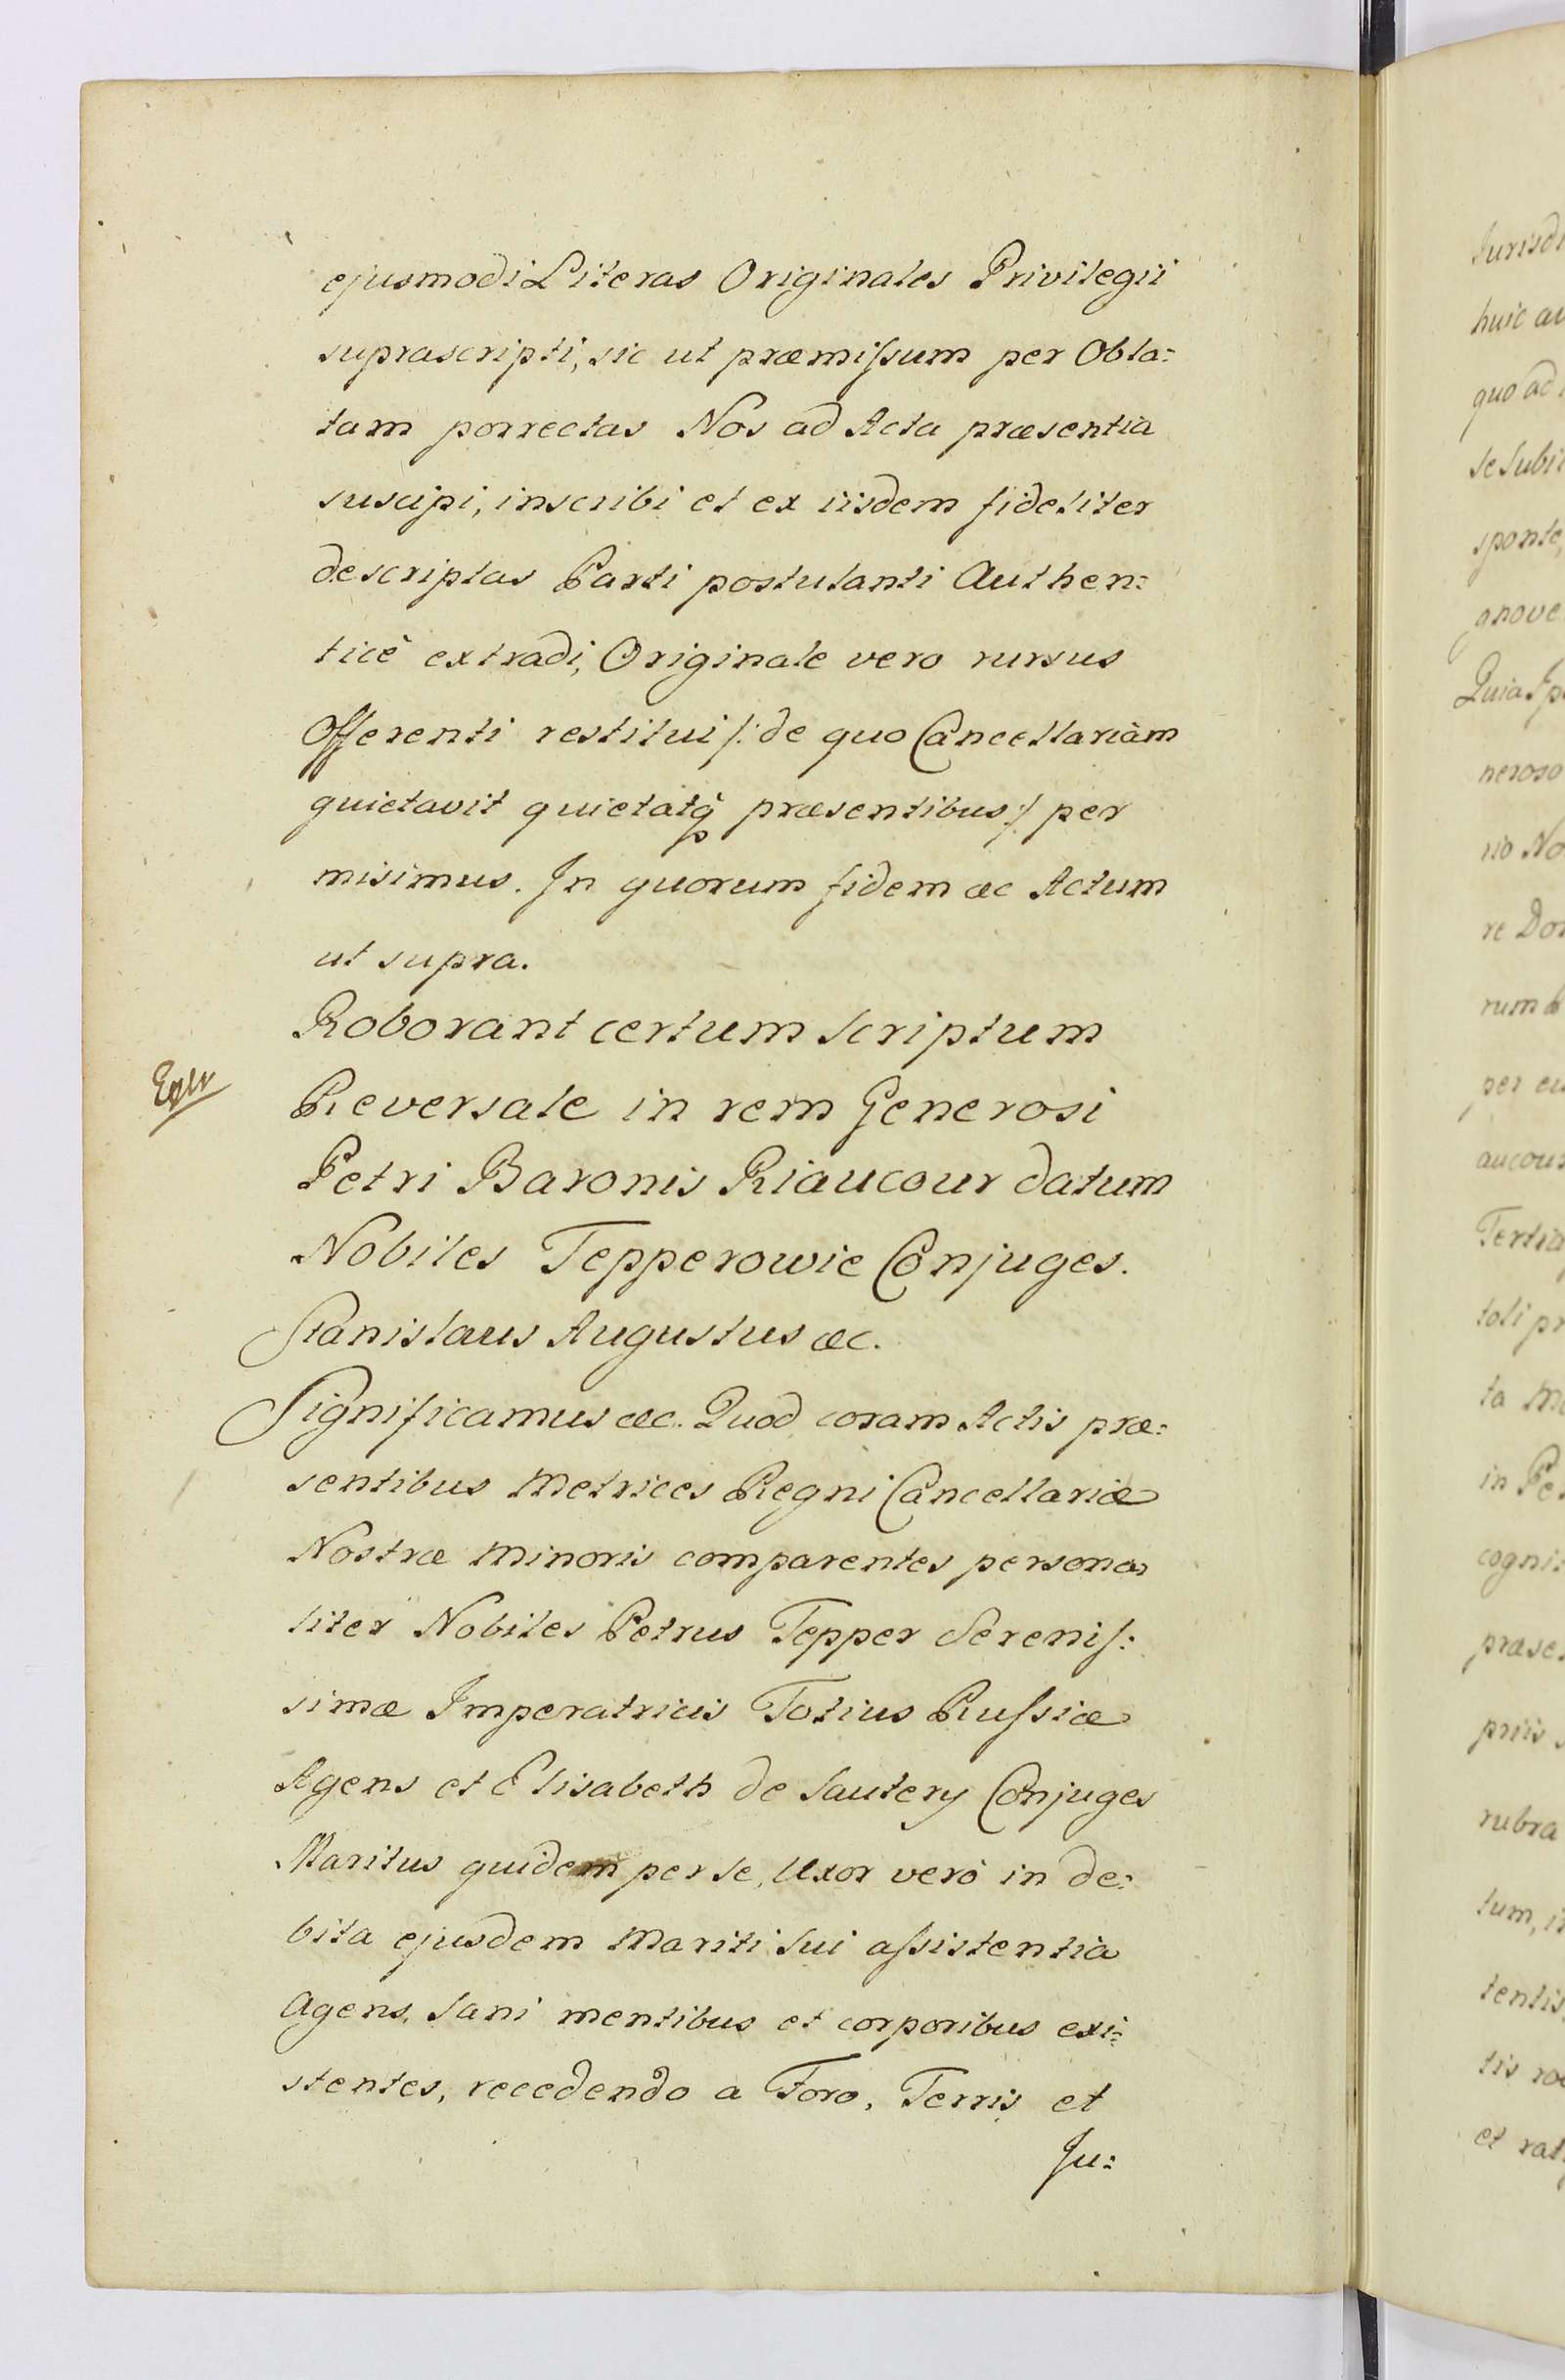 ejusmodi Literas Originales Privilegii
suprascripti, sic ut præmissum per Obla=
tam porrectas Nos ad Acta præsentia
suscipi, inscribi et ex iisdem fideliter
descriptas Parti postulanti Authen=
ticè extradi, Originale vero rursus
Offerenti restitui /: de quo Cancellariam
quietavit quietatq præsentibus :/ per
misimus. In quorum fidem &c Actum
ut supra.
Roborant certum Scriptum
Reversale in rem Generosi
Petri Baronis Riaucour datum
Nobiles Tepperowie Conjuges.
Stanislaus Augustus &c.
Significamus &c. Quod coram Actis præ=
sentibus Metrices Regni Cancellariæ
Nostræ Minoris comparentes persona=
liter Nobiles Petrus Tepper Serenis=
simæ Imperatricis Totius Russiæ
Agens et Elisabeth de Sautery Conjuges
Maritus quidem per se, Uxor verò in de=
bita ejusdem Mariti sui assistentia
Agens, Sani mentibus et corporibus exi=
stentes, recedendo a Foro, Terris et
Ju=
Jurisdi
huic au
quo ad
se Subii
sponte,
gnove
Quia Ip
neroso
rio No
re Do
rum
per eu
aucour
Tertia
toli pr
ta
in Pe
cogni=
præse
priis
rubra
tum, i
tentis
tis ro
et rat